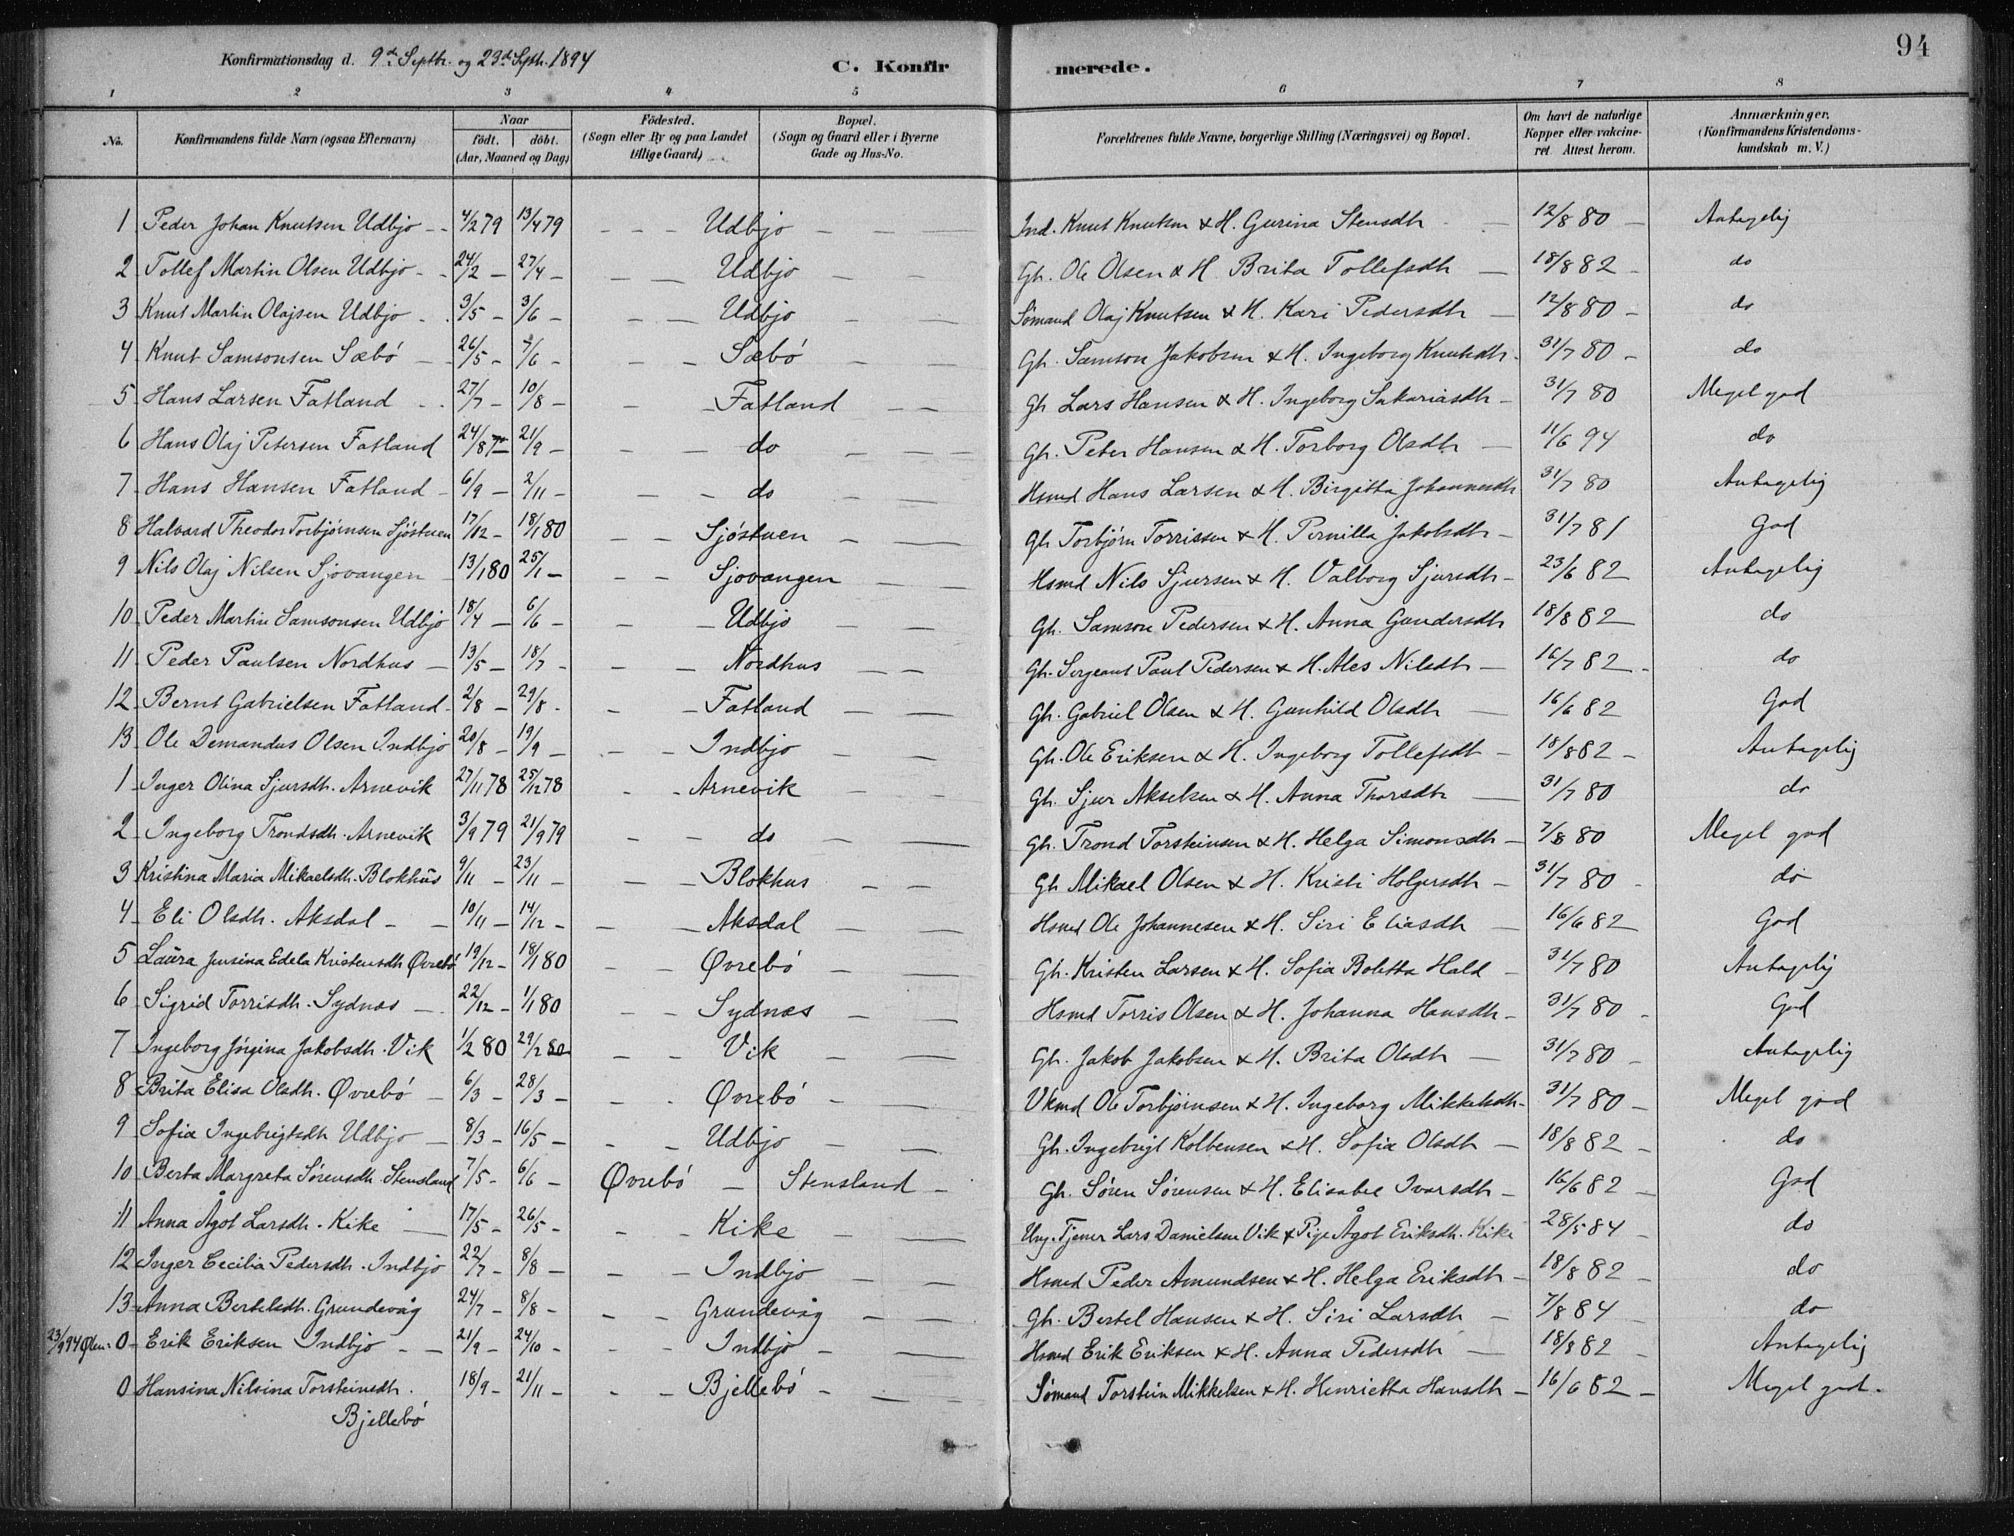 Konfirmationsdag d. 9de Septbr. og 23de Septh. 1894 C. Konfirmerede. 94
1 2 3 4 5 6 7 8
No. Konfirmandens fulde Navn (ogsaa Efternavn) Naar født. døbt. (Aar, Maaned og Dag) Fødested. (Sogn eller By og paa Landet tillige Gaard) Bopæl. (Sogn og Gaard eller i Byerne Gade og Hus-No. Forældrenes fulde Navne, borgerlige Stilling (Næringsvei) og Bopæl. Om havt de naturlige Kopper eller vakcineret. Attest herom. Anmærkninger. (Konfirmandens Kristendomskundskab m. V.)
1 Peder Johan Knutsen Udbjo 4/2 79 13/4 79 Udbjo Ind. Knut Knutsen & H. Gurina Stensdtr 12/8 80 Antagelig
2 Tollef Martin Olsen Udbjo 24/2 27/4 Udbjo Gh. Ole Olsen & H. Brita Tollefsdtr 18/8 82 do
3 Knut Martin Olajsen Udbjo 3/5 3/6 Udbjo Sømand Olaj Knutsen & H. Kari Pedersdtr 12/8 80 do
4 Knut Samsonsen Sæbö 26/5 7/6 Sæbö Gh. Samson Jakobsen & H. Ingeborg Knutsdtr 31/7 80 do
5 Hans Larsen Fatland 27/7 10/8 Fatland Gh Lars Hansen & H. Ingeborg Sakariasdtr 31/7 80 Meget god
6 Hans Olaj Petersen Fatland 24/8 21/9 do Gh. Peter Hansen & H. Torborg Olsdtr 11/6 94 do
7 Hans Hansen Fatland 6/9 2/11 do Hsmd Hans Larsen & H. Birgitta Johannesdtr 31/7 80 Antagelig
8 Halvard Theodor Torbjørnsen Sjöstuen 17/12 18/1 80 Sjöstuen Gh Torbjørn Torrissen & H. Pernilla Jakobsdtr 31/7 81 God
9 Nils Olaj Nilsen Sjovangen 13/1 80 25/1 Sjovangen Hsmd Nils Sjursen & H. Valborg Sjursdtr 23/6 82 Antagelig
10 Peder Martin Samsonsen Udbjo 18/4 6/6 Udbjo Gh. Samson Pedersen & H. Anna Gundersdtr 18/8 82 do
11 Peder Paulsen Nordhus 13/5 18/7 Nordhus Gh. Sergeant Paul Pedersen & H. Ales Nilsdtr 16/7 82 do
12 Bernt Gabrielsen Fatland 2/8 29/8 Fatland Gh. Gabriel Olsen & H. Gunhild Olsdtr 16/6 82 God
13 Ole Demandus Olsen Indbjo 20/8 19/9 Indbjo Gh. Ole Eriksen & H. Ingeborg Tollefsdtr 18/8 82 Antagelig
1 Inger Olina Sjursdtr. Arnevik 27/11 78 25/12 78 Arnevik Gh. Sjur Akselsen & H. Anna Thorsdtr 31/7 80 do
2 Ingeborg Trondsdtr. Arnevik 3/9 79 21/9 79 do Gh. Trond Torsteinsen & H. Helga Simonsdtr 7/8 80 Meget god
3 Kristina Maria Mikaelsdtr. Blokhus 9/11 23/11 Blokhus Gh Mikael Olsen & H. Kristi Holgersdtr 31/7 80 do
4 Eli Olsdtr. Aksdal 10/11 14/12 Aksdal Hsmd Ole Johannesen & H. Siri Eliasdtr 16/6 82 God
5 Laura Jensina Edela Kristensdtr Øvrebö 19/12 18/1 80 Øvrebö Gh. Kristen Larsen & H. Sofia Boletta Hald 31/7 80 Antagelig
6 Sigrid Torrisdtr. Sydnæs 22/12 1/1 80 Sydnæs Hsmd Torris Olsen & H. Johanna Hansdtr 31/7 80 God
7 Ingeborg Jørgina Jakobsdtr. Vik 1/2 80 29/2 80 Vik Gh. Jakob Jakobsen & H. Brita Olsdtr 31/7 80 Antagelig
8 Brita Elisa Olsdtr. Øvrebö 6/3 28/3 Øvrebö Vkmd Ole Torbjørnsen & H. Ingeborg Mikkelsdtr 31/7 80 Meget god
9 Sofia Ingebrigtsdtr Udbjo 8/3 16/5 Udbjo Gh. Ingebrigt Kolbensen & H. Sofia Olsdtr 18/8 82 do
10 Berta Margreta Sørensdtr. Stensland 7/5 6/6 Øvrebö Stensland Gh. Søren Sørensen & H. Elisabet Ivarsdtr 16/6 82 God
11 Anna Ågot Larsdtr. Kike 17/5 26/5 Kike Ung. Tjener Lars Danielsen Vik & Pige Ågot Eriksdtr. Kike 28/5 84 do
12 Inger Cecilia Pedersdtr. Indbjo 22/7 8/8 Indbjo Hsmd Peder Amundsen & H. Helga Eriksdtr 18/8 82 do
13 Anna Bertelsdtr. Grundevåg 24/7 8/8 Grundevåg Gh. Bertel Hansen & H. Siri Larsdtr 7/8 84 do
23/9 94 Ølen: 0 Erik Eriksen Indbjo 21/9 24/10 Indbjo Hsmd Erik Eriksen & H. Anna Pedersdtr 18/8 82 Antagelig
0 Hansina Nilsina Torsteinsdtr. 18/9 21/11 Bjellebö Sømand Torstein Mikkelsen & H. Henrietta Hansdtr 16/6 82 Meget god.
Bjellebö